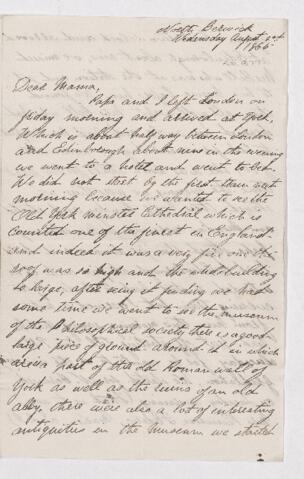 North Berwick
Wednesday August 22nd
1866
Dear Mama,
Papa and I left London on
friday morning and arrived at York,
which is about half way between London
and Edinborough about nine in the evening
we went to a hotel and went to bed.
We did not start by the first train next
morning because we wanted to see the
Old York minster Cathedral which is
counted one of the finest in England
and indeed it was a very fine one the
roof was so high and the whole building
so large, after seing it finding we had
some time we went to see the museum
of the Philosophical society there is a good
large piece of ground around it in which
are a part of the old Roman wall of
York as well as the ruins of an old
abby, there were also a lot of interesting
antiquities in the museum we started